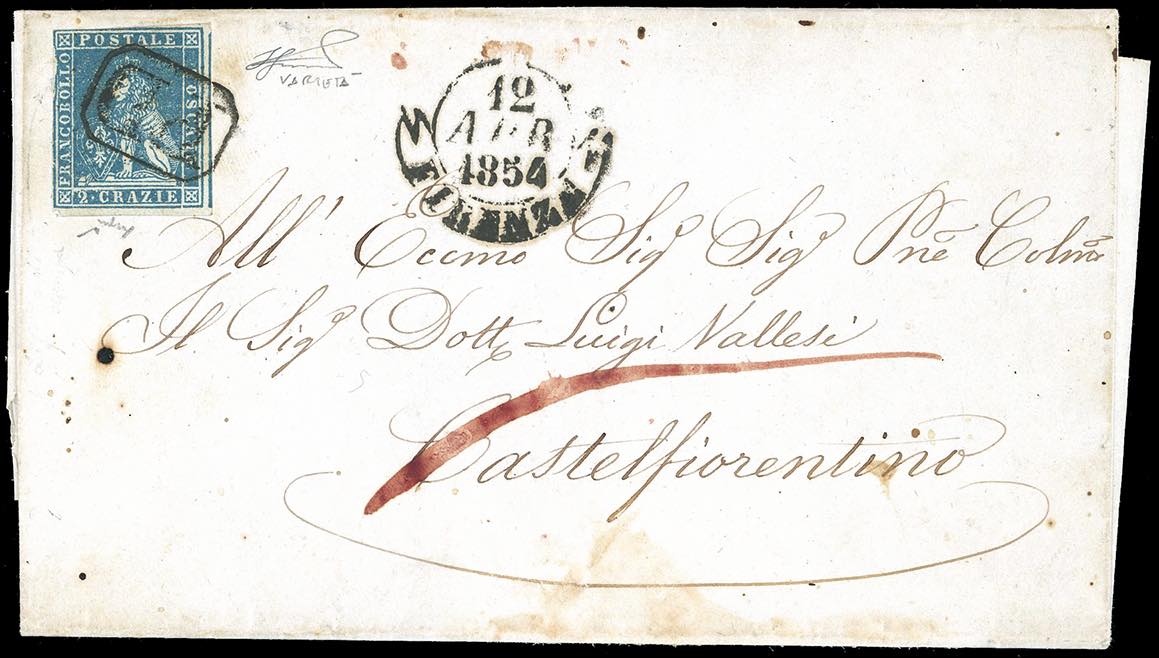 FRANCOBOLLO POSTALE TOSCANO
2 CRAZIE
VARIETÀ
12
APR
1854
FIRENZE
All' Eccmo Sigr Sigr Pne Colmo
Il Sigr Dott Luigi Vallesi
Castelfiorentino